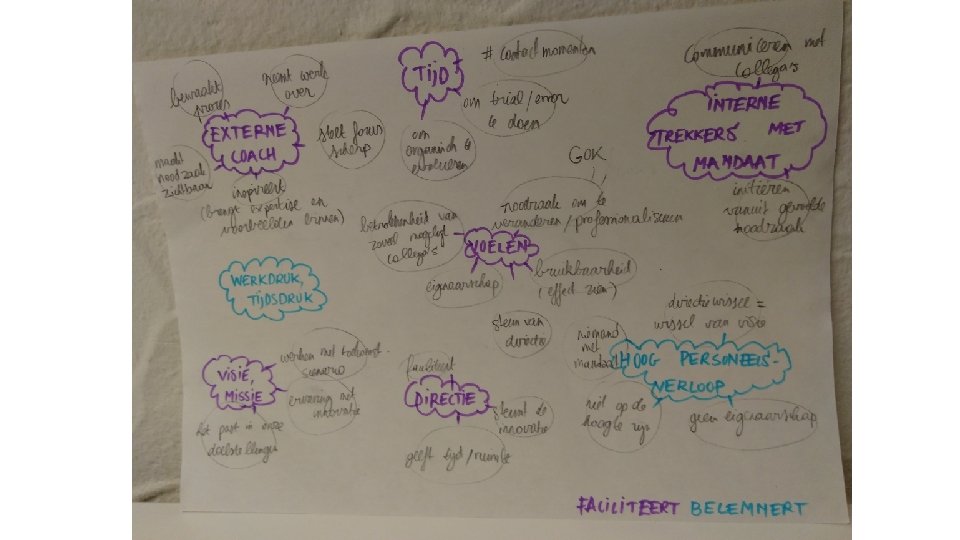 bewaakt
proces
neemt werk
over
EXTERNE
COACH
stelt focus
scherp
maakt
noodzaak
zichtbaar
inspireert
(brengt expertise en
voorbeelden binnen)
TIJD
# contactmomenten
om trial/error
te doen
om
organisch te
evolueren
Communiceren met
collega's
INTERNE
TREKKERS MET
MANDAAT
initiëren
vanuit gevoelde
noodzaak
GOK
noodzaak om te
veranderen/professionaliseren
betrokkenheid van
zoveel mogelijk
collega's
VOELEN
eigenaarschap
bruikbaarheid
(effect zien)
WERKDRUK,
TIJDSDRUK
directiewissel =
wissel van visie
niemand
met
mandaat
HOOG PERSONEELS-
VERLOOP
niet op de
hoogte zijn
geen eigenaarschap
werken met toekomst-
scenario
VISIE,
MISSIE
ervaring met
innovatie
het past in onze
doelstellingen
steun van
directie
faciliteert
DIRECTIE
steunt de
innovatie
geeft tijd/ruimte
FACILITEERT BELEMMERT